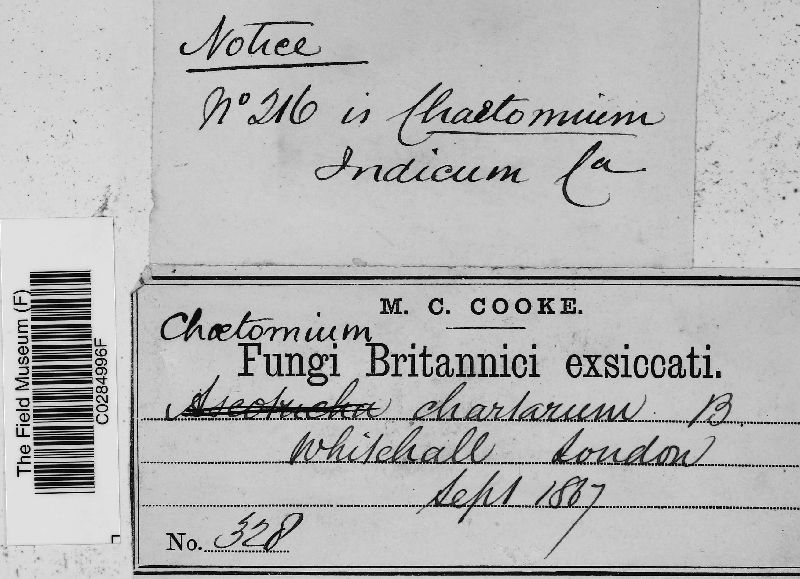 Notice
No 216 is Chaetomium
Indicum Ca
The Field Museum (F)
C0284996F
M. C. COOKE.
Chætomium
Fungi Britannici exsiccati.
Ascotricha chartarum B.
Whitehall London
Sept 1867
No. 328